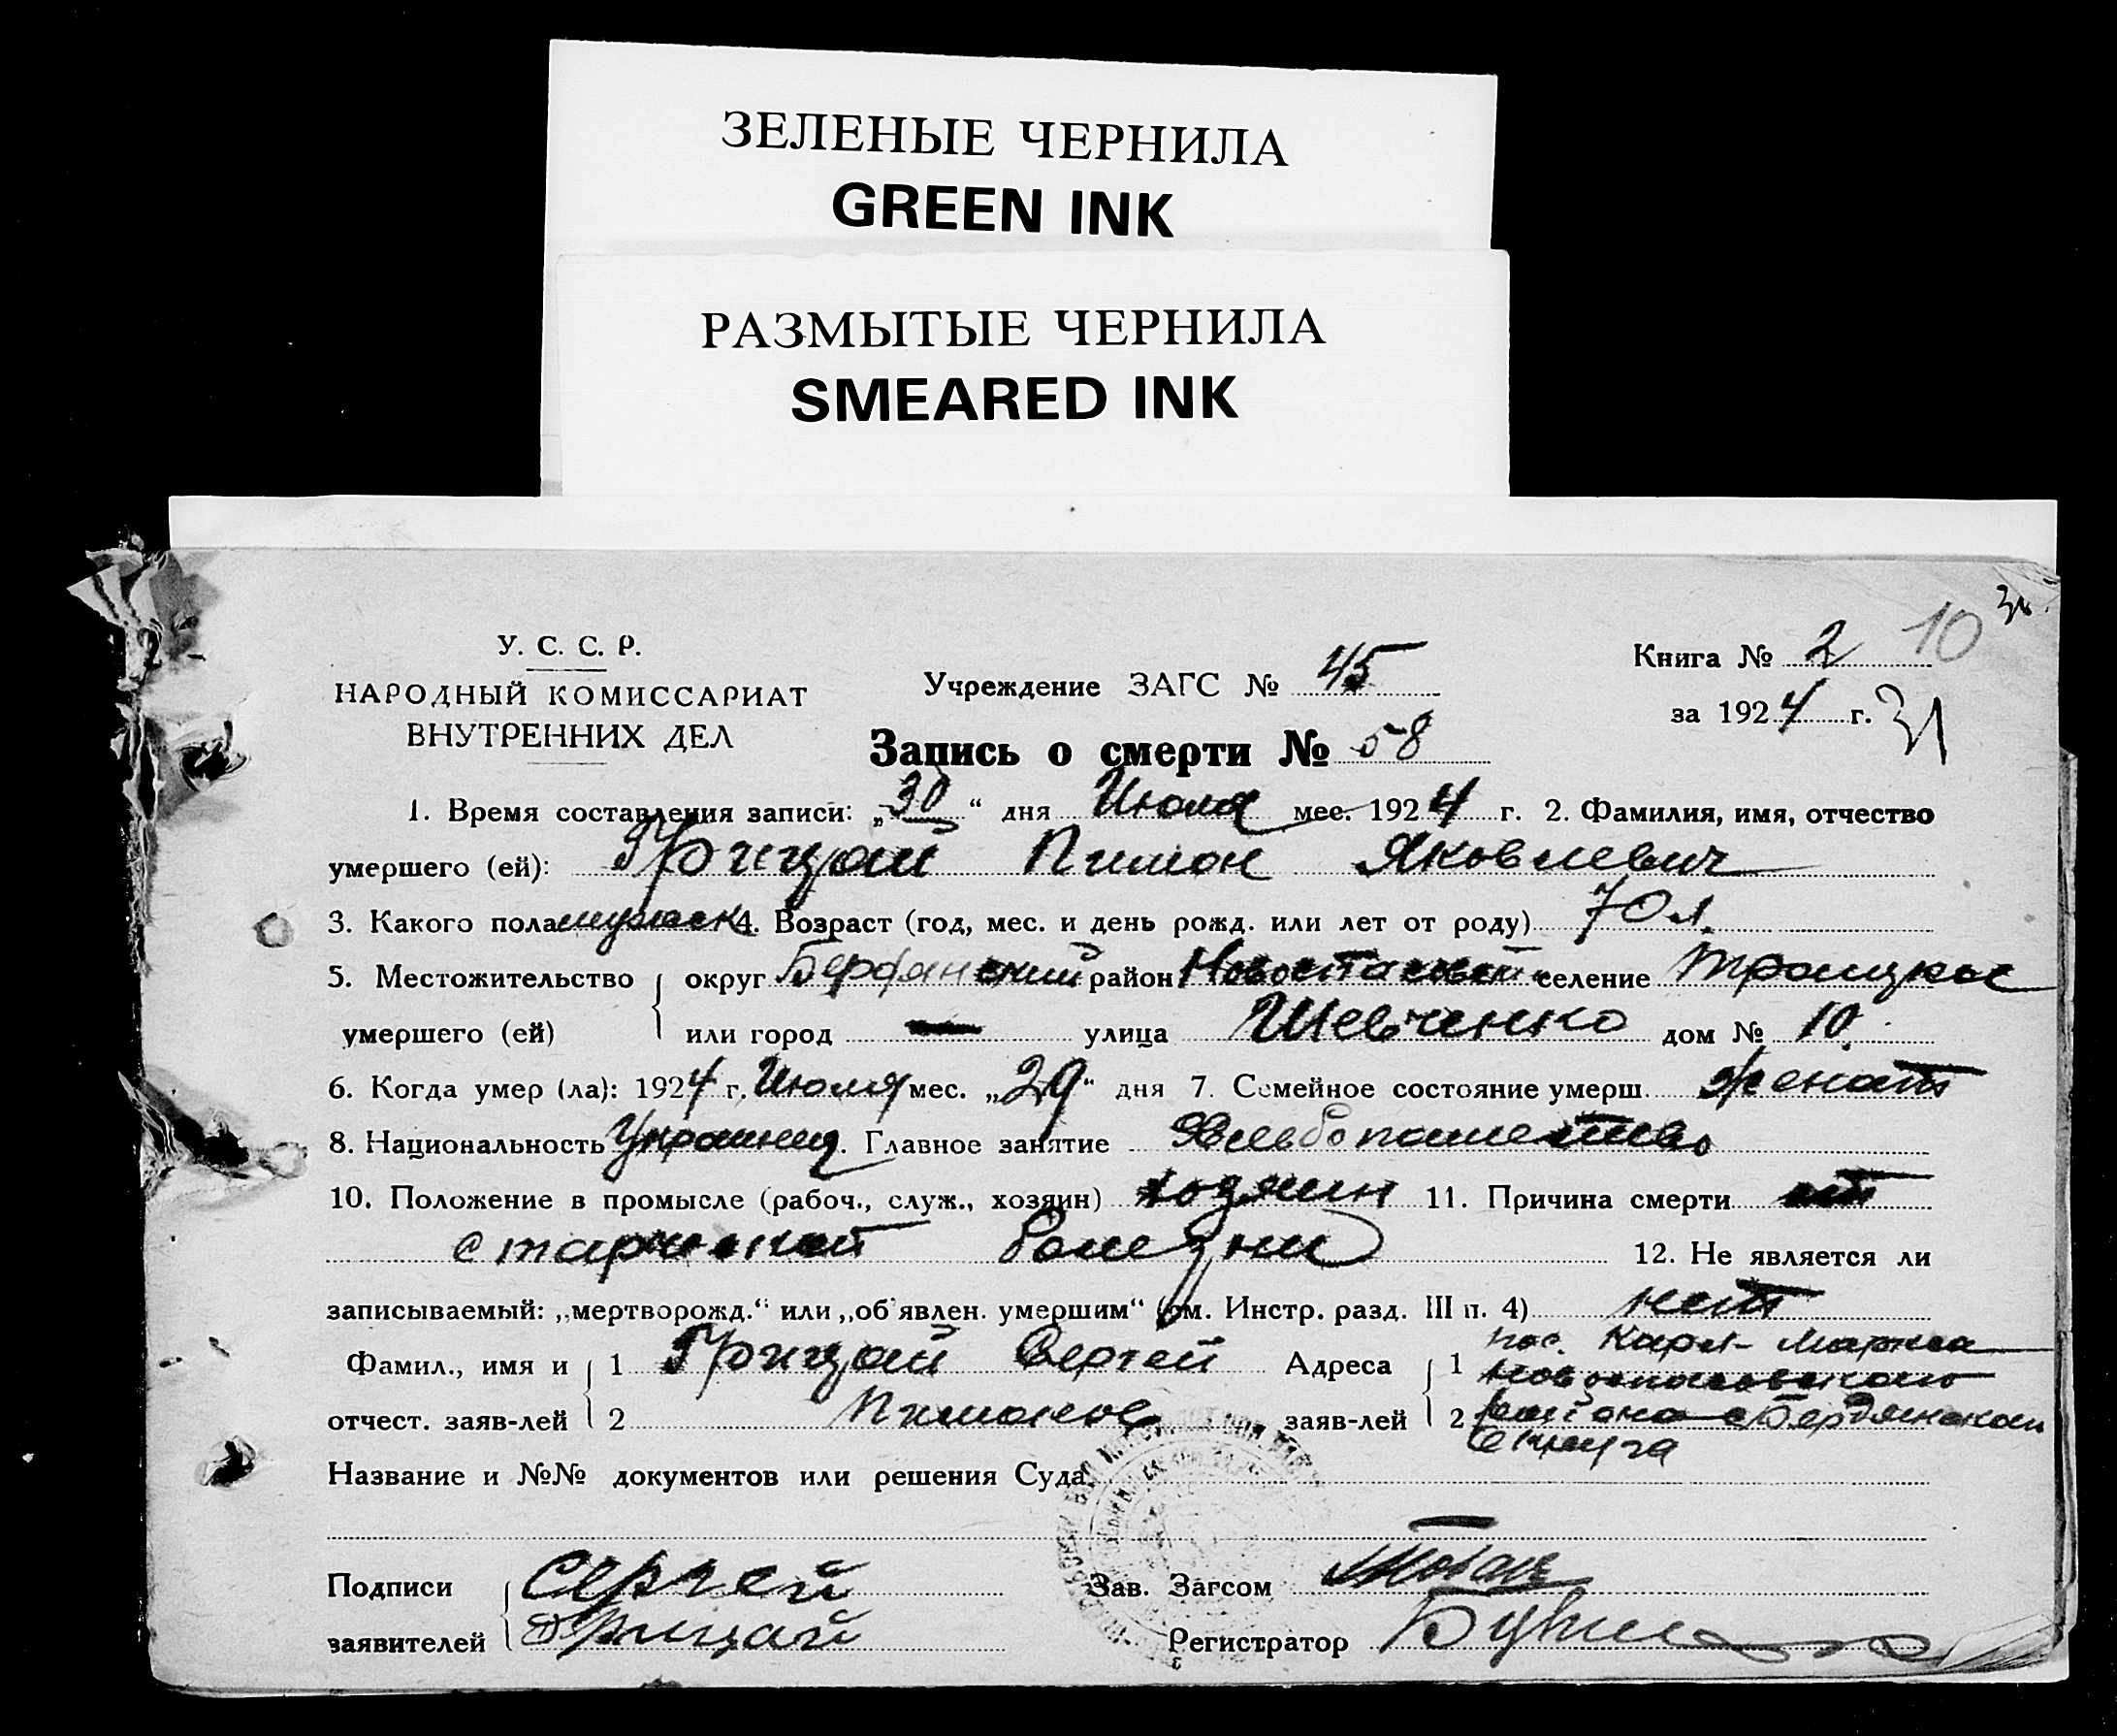 ЗЕЛЕНЫЕ ЧЕРНИЛА
GREEN INK
РАЗМЫТЫЕ ЧЕРНИЛА
SMEARED INK
У. С. С. Р.
НАРОДНЫЙ КОМИССАРИАТ
ВНУТРЕННИХ ДЕЛ
Учреждение ЗАГС № 45
Книга № 2 10
за 1924 г. 31
Запись о смерти № 58
1. Время составления записи: „30“ дня Июля мес. 1924 г. 2. Фамилия, имя, отчество
умершего (ей): Грицай Пимон Яковлевич
3. Какого пола мужск 4. Возраст (год, мес. и день рожд. или лет от роду) 70 л.
5. Местожительство округ Бердянский район Новоспасовский селение Троицкое
умершего (ей) или город — улица Шевченко дом № 10.
6. Когда умер (ла): 1924 г. Июля мес. „29“ дня 7. Семейное состояние умерш. женат
8. Национальность Украинец 9. Главное занятие Хлебопашество
10. Положение в промысле (рабоч., служ., хозяин) хозяин 11. Причина смерти от
старческой болезни 12. Не является ли
записываемый: „мертворожд.“ или „об'явлен. умершим“ (см. Инстр. разд. III п. 4) нет
Фамил., имя и 1 Грицай Сергей Адреса 1 пос. Карл-Маркса
Новоспасовского
отчест. заяв-лей 2 Пимонов заяв-лей 2 района Бердянского
Округа
Название и №№ документов или решения Суда
Подписи Сергей Зав. Загсом
заявителей Грицай Регистратор